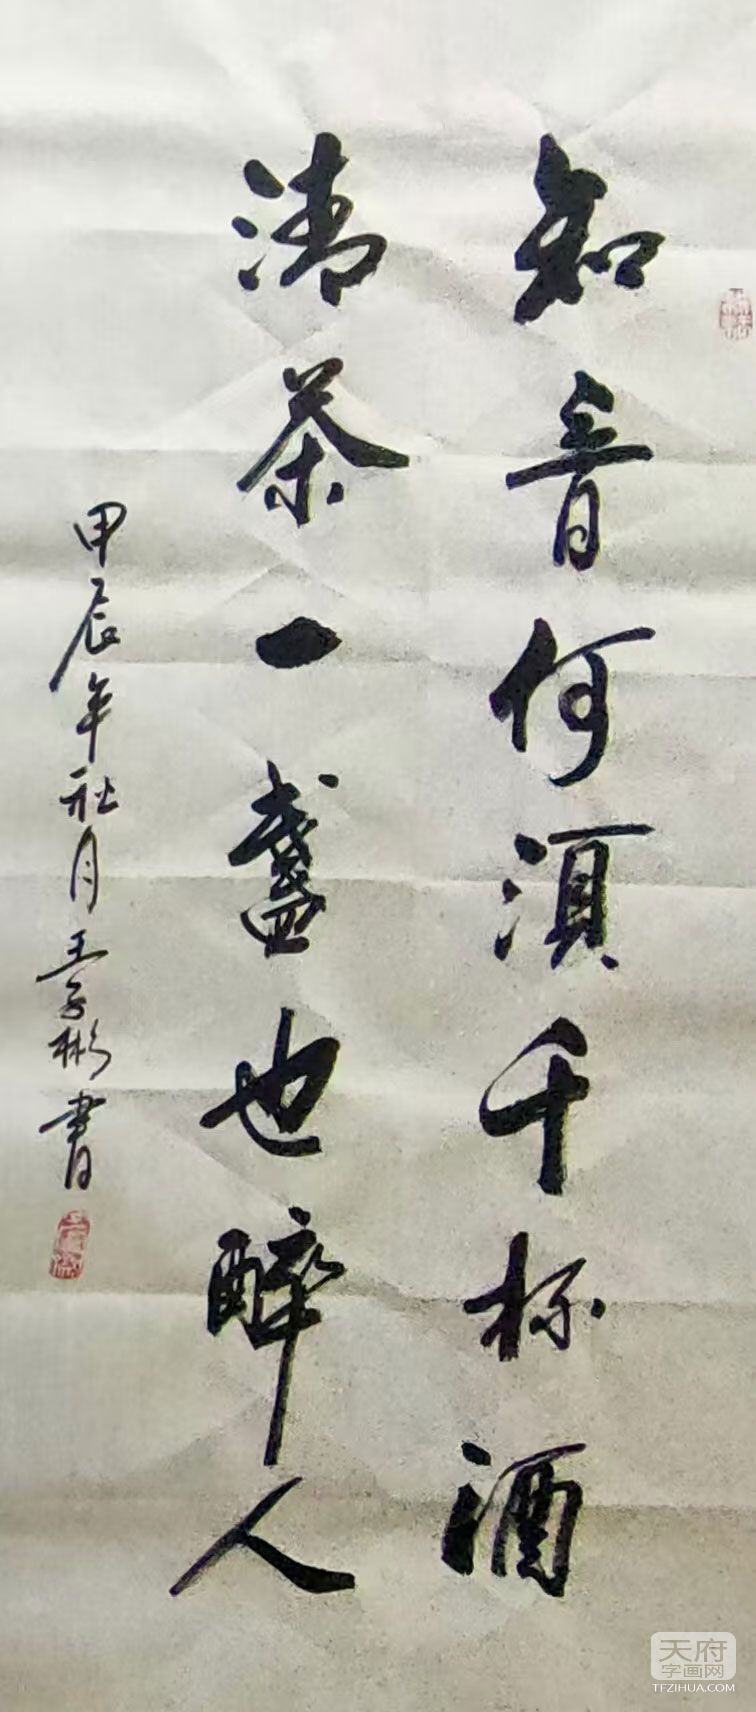 知音何須千杯酒
清茶一盞也醉人
甲辰年秋月王子彬書
天府
字画网
TFZIHUA.COM